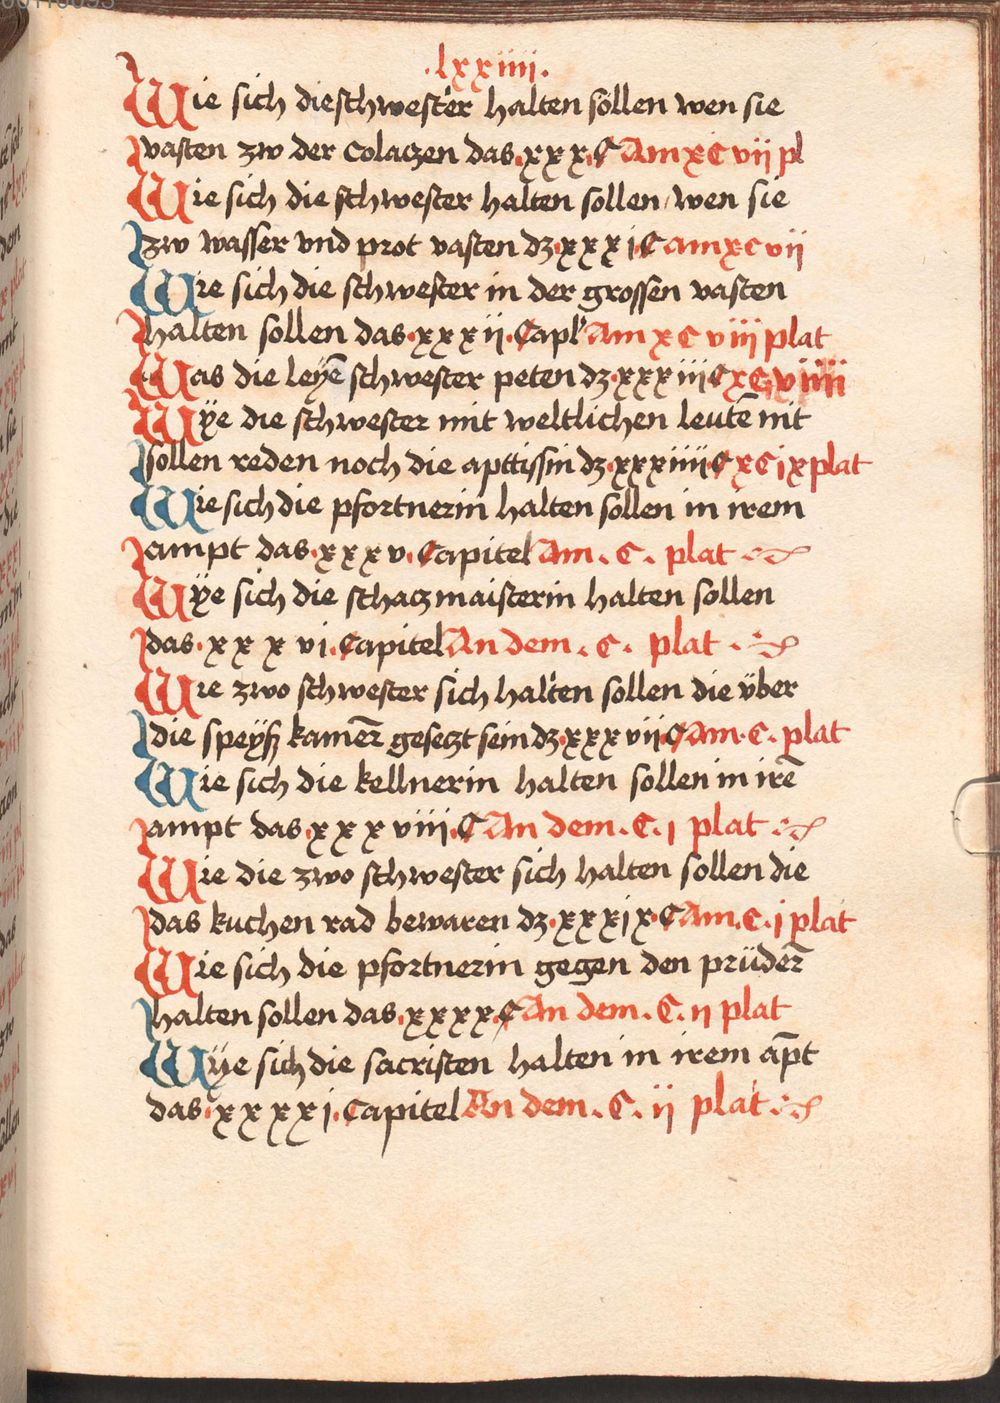 .lxxiiii.
Wie sich die schwester halten sollen wen sie
vasten zw der Colaczen das.xxx.C Am xCvii pl
Wie sich die schwester halten sollen wen sie
zw wasser vnd prot vasten dz.xxxi.C am xcvii
Wie sich die schwester in der grossen vasten
halten sollen das.xxxii.Capl' Am xCviii plat
Was die leyē schwester peten dz.xxxiii C xcviiii
Wÿe die schwester mit weltlichen leutē nit
sollen reden noch die apttissin dz.xxxiiii.C xCix plat
Wie sich die pfortnerin halten sollen in irem
ampt das.xxxv.Capitel Am.C.plat
Wÿe sich die schaczmaisterin halten sollen
das.xxxvi.Capitel An dem.C.plat.
Wie zwo schwester sich halten sollen die über
die speÿsz kamer̄ geseczt sein dz.xxxvii.C Am.C.plat
Wie sich die kellnerin halten sollen in irē
ampt das.xxxviii.C An dem.C.i plat.
Wie die zwo schwester sich halten sollen die
das kuchen rad bewaren dz.xxxix.C Am.C.i plat
Wie sich die pfortnerin gegen den prüder̄
halten sollen das.xxxx.C An dem.C.ii plat
Wÿe sich die sacristen halten in irem āpt
das.xxxxi.Capitel An dem.C.ii plat.